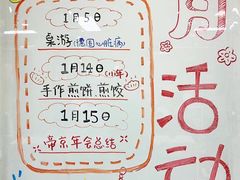 1月5日
桌游(德国心脏病)
1月14日(小年)
手作煎饼,煎饺
1月15日
帝京年会总结
月活动